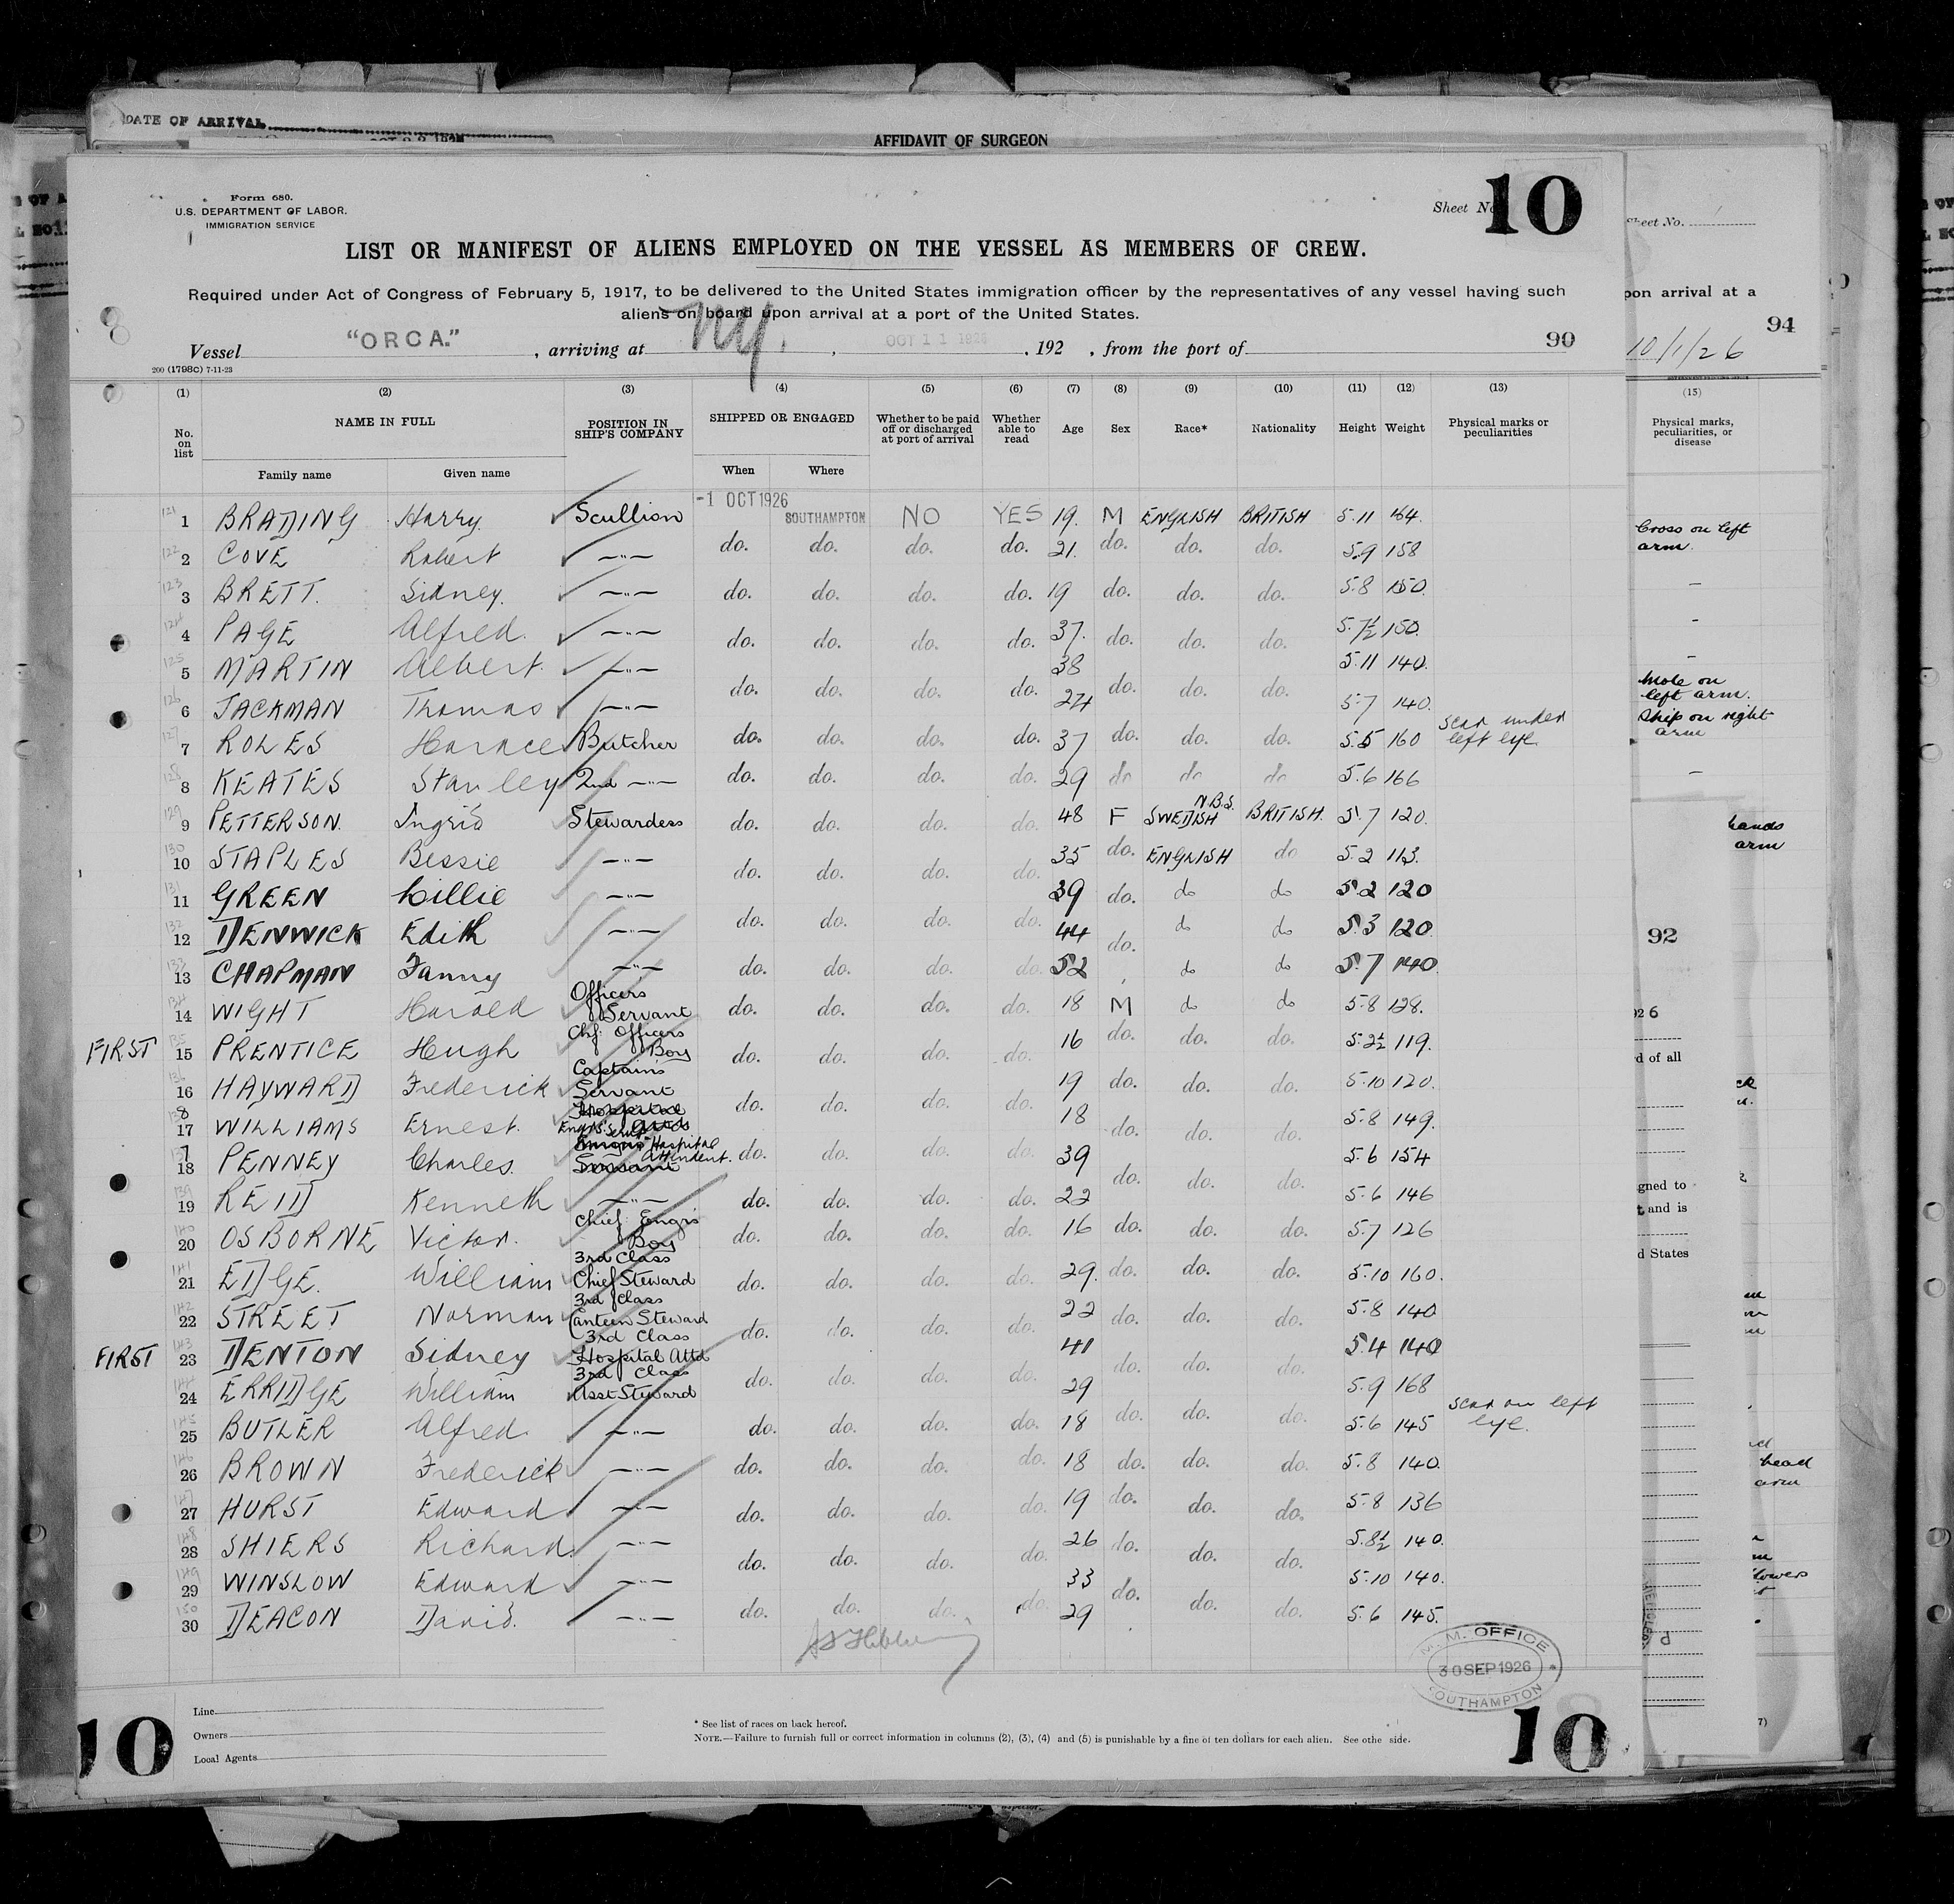 DATE OF ARRIVAL
AFFIDAVIT OF SURGEON
Form 680.
U.S. DEPARTMENT OF LABOR.
IMMIGRATION SERVICE
Sheet No. 10
Sheet No.
LIST OR MANIFEST OF ALIENS EMPLOYED ON THE VESSEL AS MEMBERS OF CREW.
Required under Act of Congress of February 5, 1917, to be delivered to the United States immigration officer by the representatives of any vessel having such
aliens on board upon arrival at a port of the United States.
pon arrival at a
94
10/1/26
Vessel "ORCA." , arriving at NY. , OCT 11 1926 , 192 , from the port of 90
200 (1798C) 7-11-23
(1) (2) (3) (4) (5) (6) (7) (8) (9) (10) (11) (12) (13)
No. on list NAME IN FULL POSITION IN SHIP'S COMPANY SHIPPED OR ENGAGED Whether to be paid off or discharged at port of arrival Whether able to read Age Sex Race* Nationality Height Weight Physical marks or peculiarities
Family name Given name When Where
(15)
Physical marks, peculiarities, or disease
121 1 BRADING Harry. Scullion -1 OCT 1926 SOUTHAMPTON NO YES 19. M ENGLISH BRITISH 5.11 164.
122 2 COVE Robert —"— do. do. do. do. 21. do. do. do. 5.9 158
123 3 BRETT. Sidney. —"— do. do. do. do. 19 do. do. do. 5.8 150.
124 4 PAGE Alfred. —"— do. do. do. do. 37. do. do. do. 5.7½ 150.
125 5 MARTIN Albert. —"— 38 5.11 140.
126 6 JACKMAN Thomas —"— do. do. do. do. 24 do. do. do. 5.7 140.
127 7 ROLES Horace Butcher do. do. do. do. 37 do. do. do. 5.5 160 scar under left eye.
128 8 KEATES Stanley 2nd —"— do. do. do. do. 29 do do do 5.6 166
129 9 PETTERSON. Ingrid Stewardess do. do. do. do. 48 F N.B.S. SWEDISH BRITISH. 5.7 120.
130 10 STAPLES Bessie —"— do. do. do. do. 35 do. ENGLISH do 5.2 113.
131 11 GREEN Lillie —"— 39 do. do do 5.2 120
132 12 DENWICK Edith —"— do. do. do. do. 44 do. do do 5.3 120.
133 13 CHAPMAN Fanny —"— do. do. do. do. 52 do do 5.7 140.
134 14 WIGHT Harold Officers Servant do. do. do. do. 18 M do do 5.8 128.
FIRST 135 15 PRENTICE Hugh Chf. Officers Boy do. do. do. do. 16 do. do. do. 5.2½ 119.
136 16 HAYWARD Frederick Captains Servant do. do. do. do. 19 do. do. do. 5.10 120.
138 17 WILLIAMS Ernest. Hospital 18 do. do. do. 5.8 149.
137 18 PENNEY Charles. Hospital Attendent. Servant do. do. do. do. 39 do. do. do. 5.6 154
139 19 REID Kenneth —"— do. do. do. do. 22 5.6 146
140 20 OSBORNE Victor. Chief Engrs Boy do. do. do. do. 16 do. do. do. 5.7 126
141 21 EDGE. William 3rd Class Chief Steward do. do. do. do. 29. do. do. do. 5.10 160.
142 22 STREET Norman 3rd Class Canteen Steward do. do. do. do. 22 do. do. do. 5.8 140
FIRST 143 23 DENTON Sidney 3rd Class Hospital Attd 41 5.4 140
144 24 ERRIDGE William 3rd Class Asst Steward do. do. do. do. 29 do. do. do. 5.9 168
145 25 BUTLER Alfred. —"— do. do. do. do. 18 do. do. do. 5.6 145 scar on left eye.
146 26 BROWN Frederick —"— do. do. do. do. 18 do. do. do. 5.8 140.
147 27 HURST Edward —"— do. do. do. do. 19 do. do. do. 5.8 136
148 28 SHIERS Richard. —"— 26 do. 5.8½ 140.
149 29 WINSLOW Edward —"— do. do. do. do. 33 do. do. do. 5.10 140.
150 30 DEACON David. —"— do. do. do. do. 29 do. do. do. 5.6 145.
Cross on left arm.
Mole on left arm.
Ship on right arm
hands
arm
92
926
d of all
gned to
t and is
d States
head
arm
lowers
M. M. OFFICE
30 SEP 1926
SOUTHAMPTON
Line
Owners
Local Agents
* See list of races on back hereof.
NOTE.—Failure to furnish full or correct information in columns (2), (3), (4) and (5) is punishable by a fine of ten dollars for each alien. See othe side.
10
10